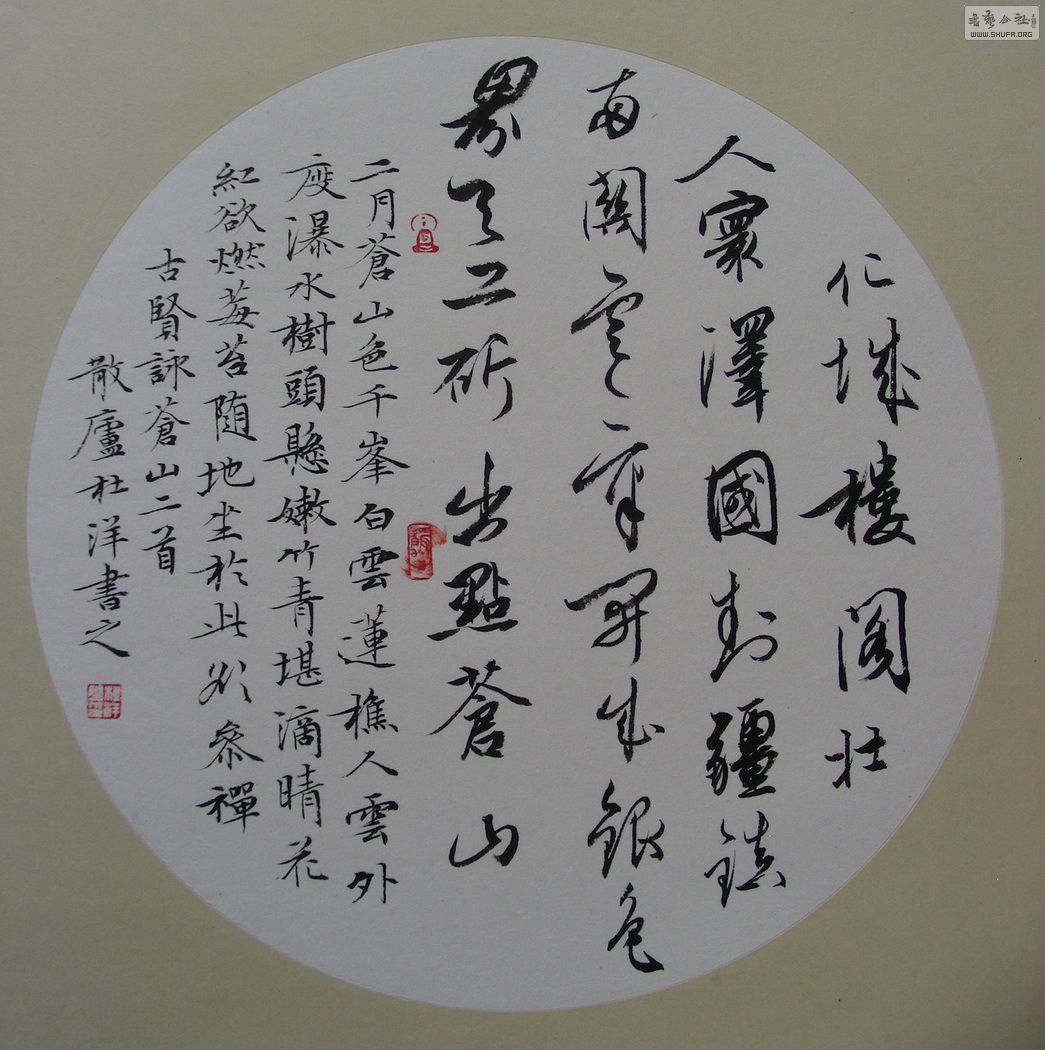 化城樓閣壮
人寰澤國封疆鎮
兩關雲开成銀色
界天工斫出點蒼山
二月蒼山色千峯白雲蓮樵人雲外
度瀑水樹頭懸嫩竹青堪滴晴花
紅欲燃莓苔随地坐於此參禪
古賢詠蒼山二首
散廬杜洋書之
書藝公社
WWW.SHUFA.ORG